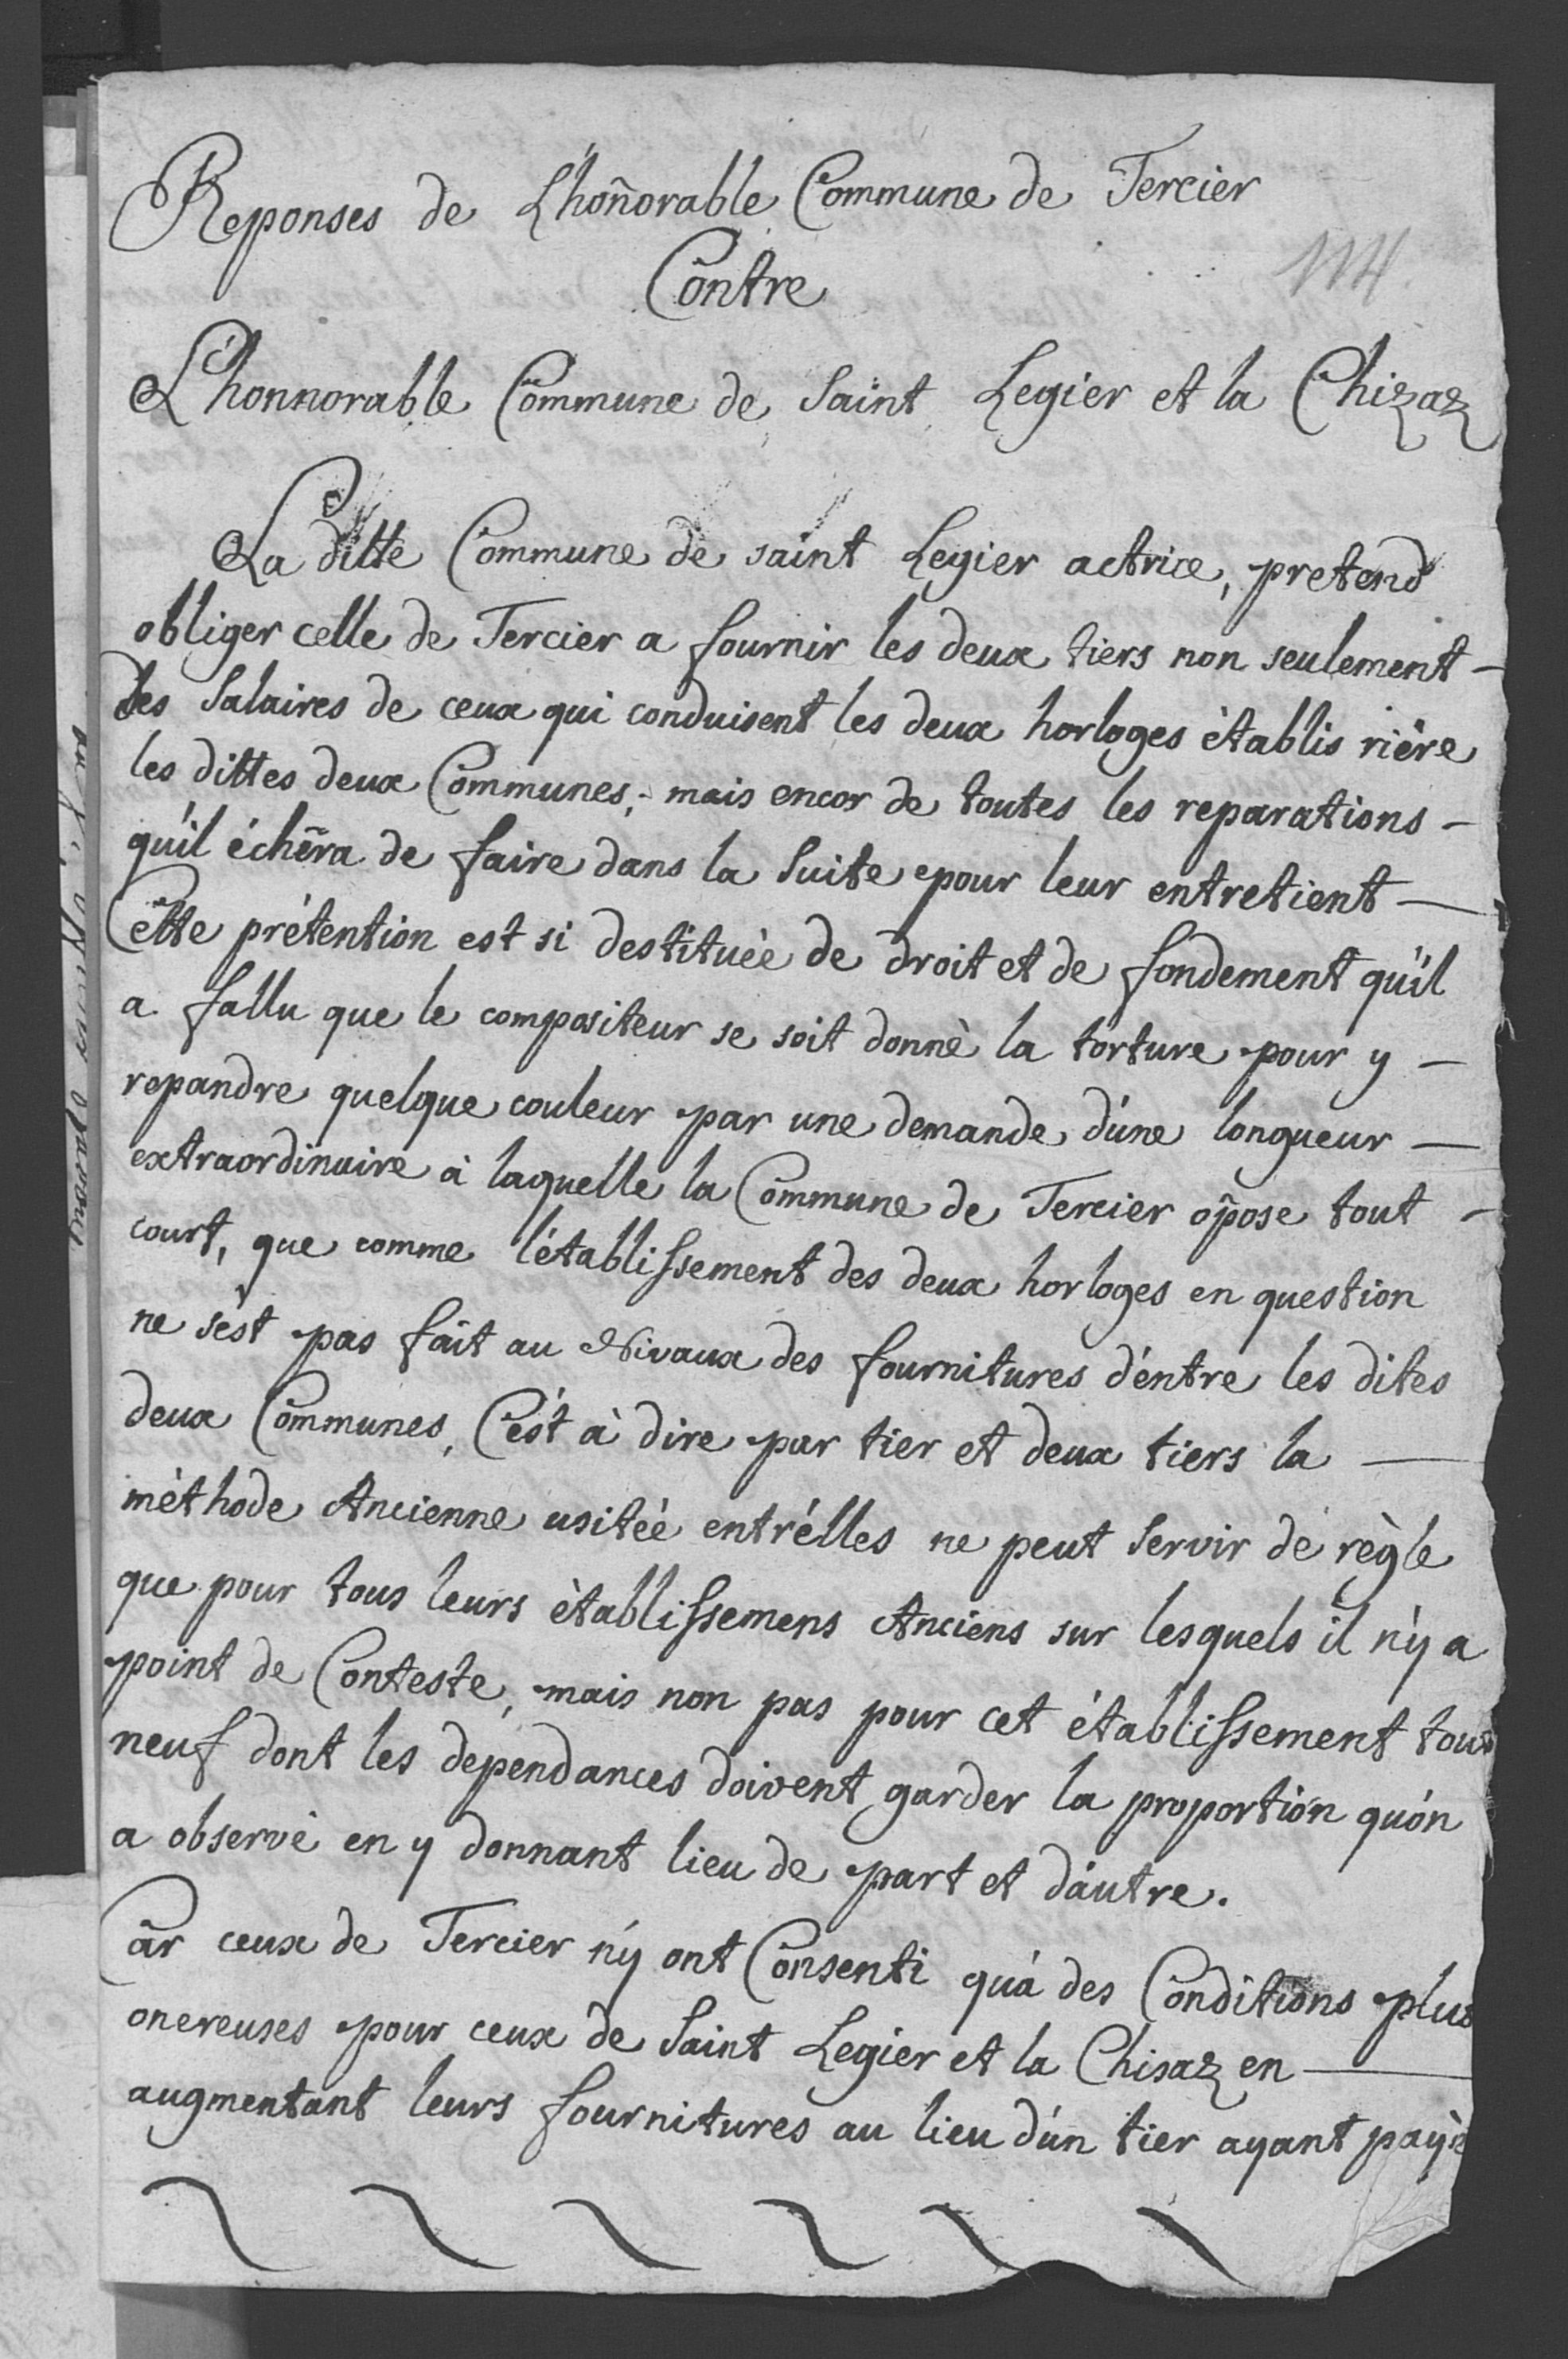 Reponses de L'honñorable Commune de Tercier
114.
Contre
L'honnorable Commune de Saint Legier et la Chizaz
La ditte Commune de saint Legier actrice, pretend
obliger celle de Tercier a fournir les deux tiers non seulement –
des Salaires de ceux qui conduisent les deux horloges ètablis riére
les dittes deux Communes, mais encor de toutes les reparations –
qu'il échēra de faire dans la Suite pour leur entretient —
Cette prétention est si destituèe de droit et de fondement qu'il
a fallu que le compositeur se soit donnè la torture pour y –
repandre quelque couleur par une demande d'une longueur —
extraordinaire à laquelle la Commune de Tercier op̃ose tout –
court, que comme l'établissement des deux horloges en question
ne s'est pas fait au Nivaux des fournitures d'entre les dites
deux Communes, C'est à dire par tier et deux tiers la —
mèthode Ancienne usitèe entr'elles ne peut Servir de règle
que pour tous leurs ètablissemens Anciens sur lesquels il n'y a
point de Conteste, mais non pas pour cet établissement tout
neuf dont les dependances doivent garder la proportion qu'on
a observè en y donnant lieu de part et d'autre.
Car ceux de Tercier n'y ont Consenti qu'à des Conditions plus
onereuses pour ceux de Saint Legier et la Chisaz en —
augmentant leurs fournitures au lieu d'un tier ayant payè